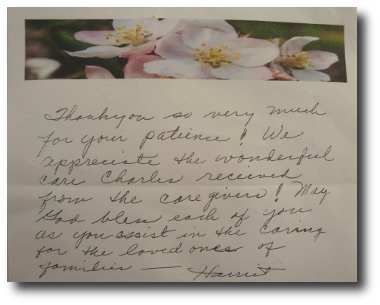 Thankyou so very much
for your patience! We
appreciate the wonderful
care Charles received
from the care givers! May
God bless each of you
as you assist in the caring
for the loved ones of
families — Harriet